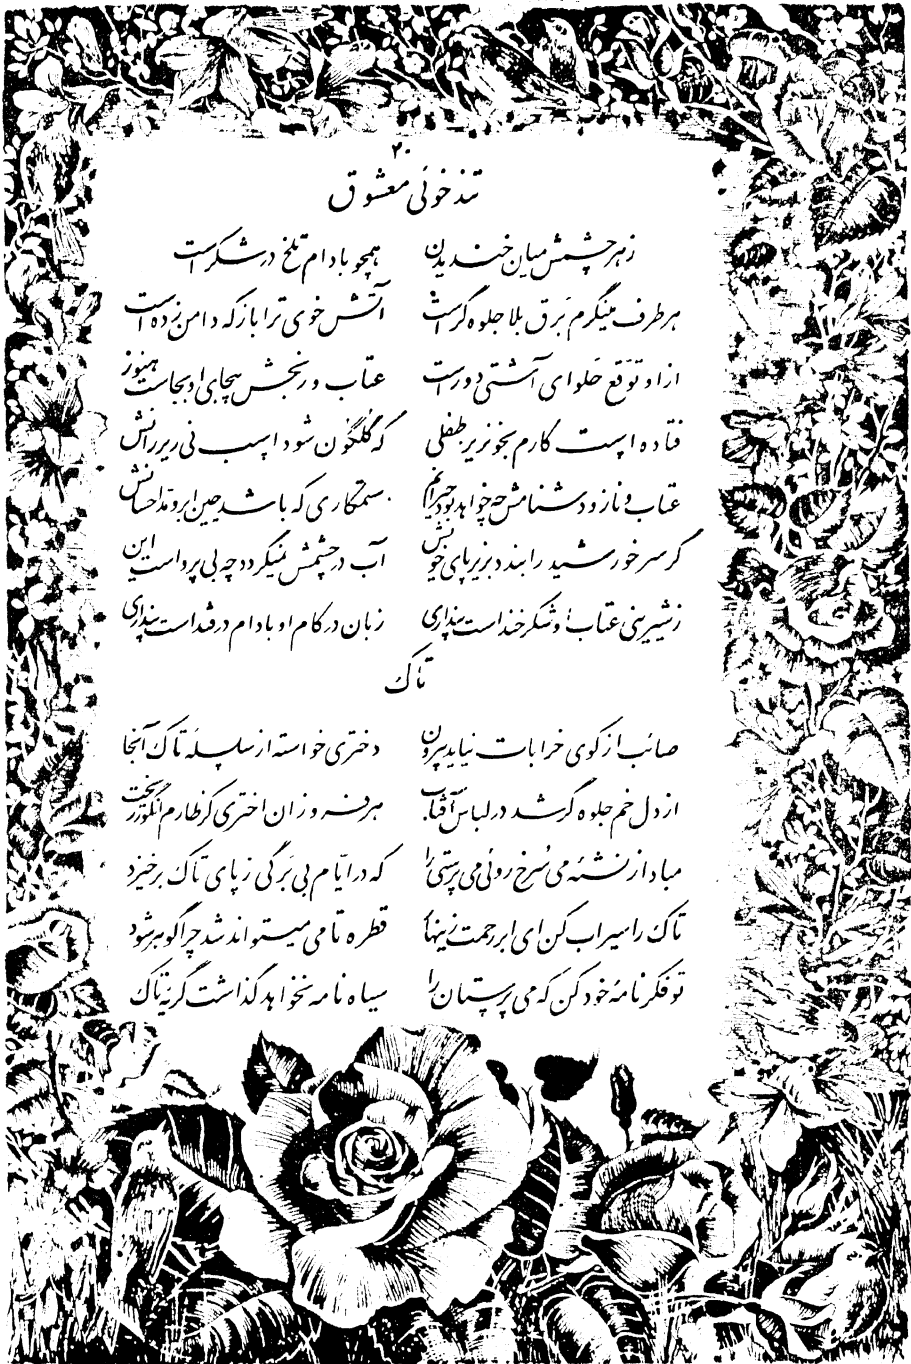 ۲۰
تندخوئی معشوق
زهر چشمش میان خندیدن همچو بادام تلخ در شکر است
هر طرف مینگرم برق بلا جلوه گر است آتش خوی ترا باز که دامن زده است
از او توقع حلوای آشتی دور است عتاب و رنجش بیجای او بجاست هنوز
فتاده است کارم بخونریز طفلی که گلگون شود اسب نی زیر رانش
عتاب و ناز و دشنامش چه خواهد بود حیرانم ستمکاری که باشد چین ابرو مد احسانش
گر سر خورشید را بندد بزیر پای خویش آب در چشمش نمیگردد چه بی پرواست این
ز شیرینی عتاب او شکرخند است پنداری زبان در کام او بادام در قند است پنداری
تاک
صائب از کوی خرابات نیاید بیرون دختری خواسته از سلسله تاک آنجا
از دل خم جلوه گر شد در لباس آفتاب هر فروزان اختری کز طارم انگور ریخت
مباد از نشئه می سرخ روئی می پرستی را که در ایام بی برگی ز پای تاک برخیزد
تاک را سیراب کن ای ابر رحمت زینهار قطره تا می میتواند شد چرا گوهر شود
تو فکر نامه خود کن که می پرستان را سیاه نامه نخواهد گذاشت گریه تاک